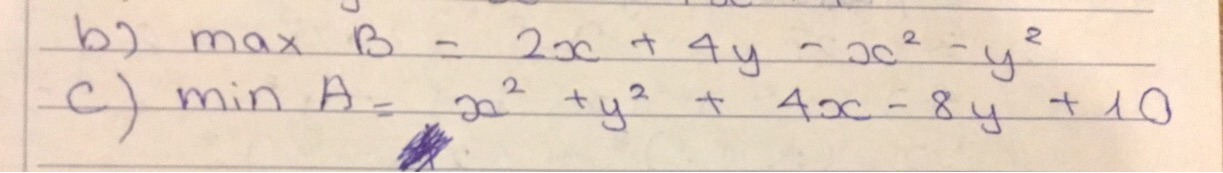 b) max B = 2x + 4y - x² - y²
c) min A = x² + y² + 4x - 8y + 10